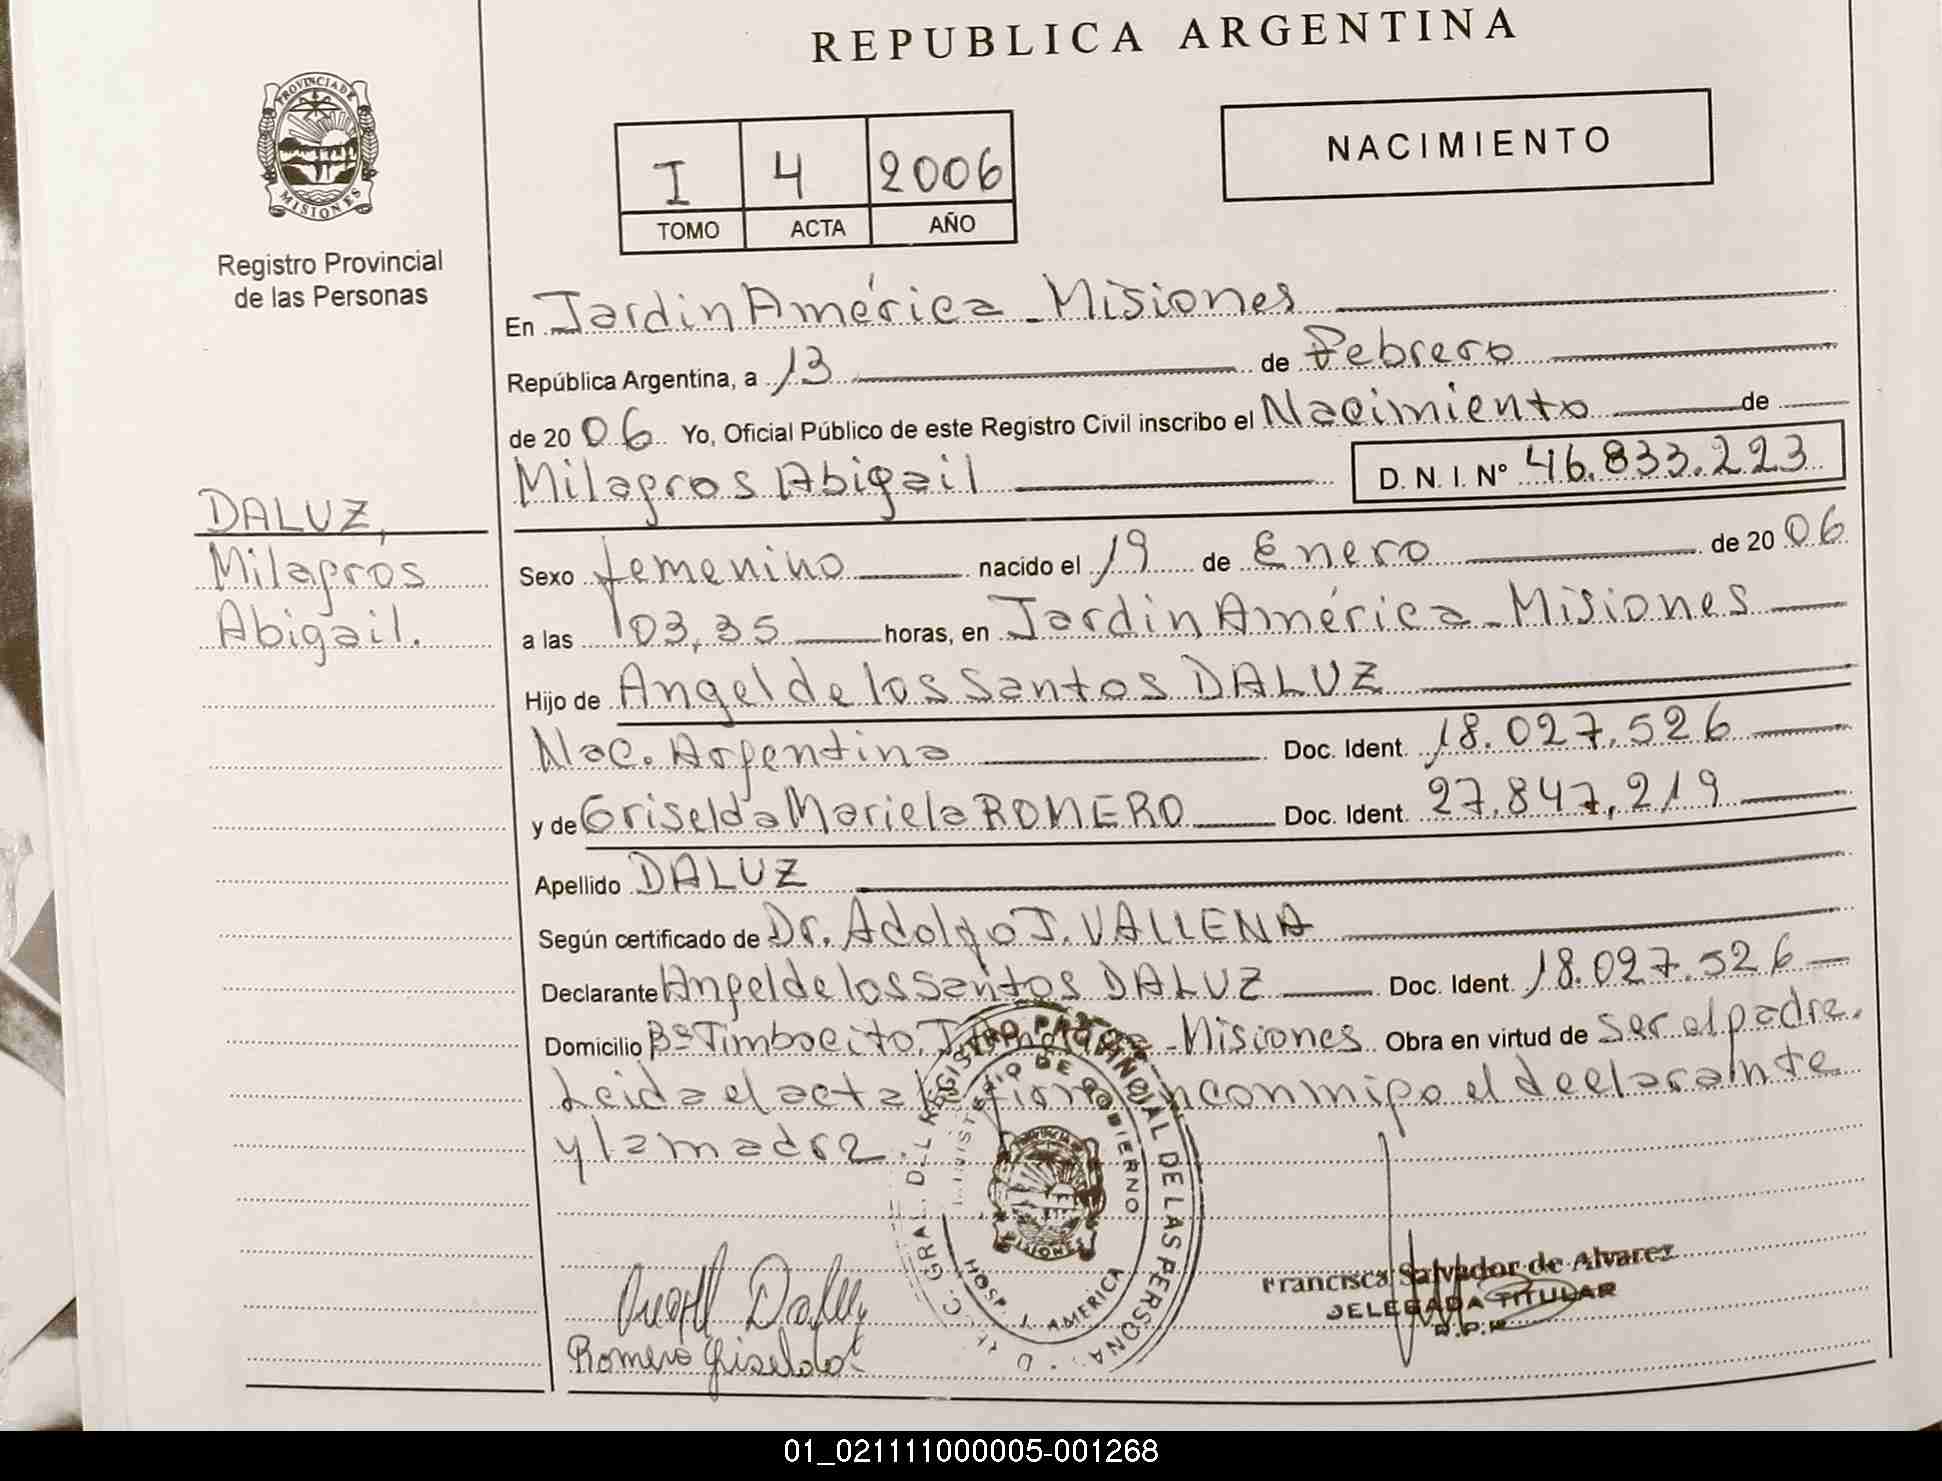 REPUBLICA ARGENTINA
PROVINCIA DE
MISIONES
Registro Provincial
de las Personas
I 4 2006
TOMO ACTA AÑO
NACIMIENTO
En Jardin América - Misiones
República Argentina, a 13 de Febrero
de 2006 Yo, Oficial Público de este Registro Civil inscribo el Nacimiento de
Milagros Abigail
D. N. I. Nº 46.833.223
DALUZ,
Milagros
Abigail.
Sexo femenino nacido el 19 de Enero de 2006
a las 03,35 horas, en Jardin América - Misiones
Hijo de Angel de los Santos DALUZ
Nac. Argentina Doc. Ident. 18.027.526
y de Griselda Mariela ROMERO Doc. Ident. 27.847.219
Apellido DALUZ
Según certificado de Dr. Adolfo J. VALLENA
Declarante Angel de los Santos DALUZ Doc. Ident. 18.027.526
Domicilio Bº Timbocito, Misiones Obra en virtud de ser el padre.
Leida el acta firman conmigo el declarante
y la madre.
REGISTRO PROVINCIAL DE LAS PERSONAS
MINISTERIO DE GOBIERNO
MISIONES
HOSP. J. AMERICA
Daluz
Romero Griselda
Francisca Salvador de Alvarez
DELEGADA TITULAR
R.P.P.
01_021111000005-001268